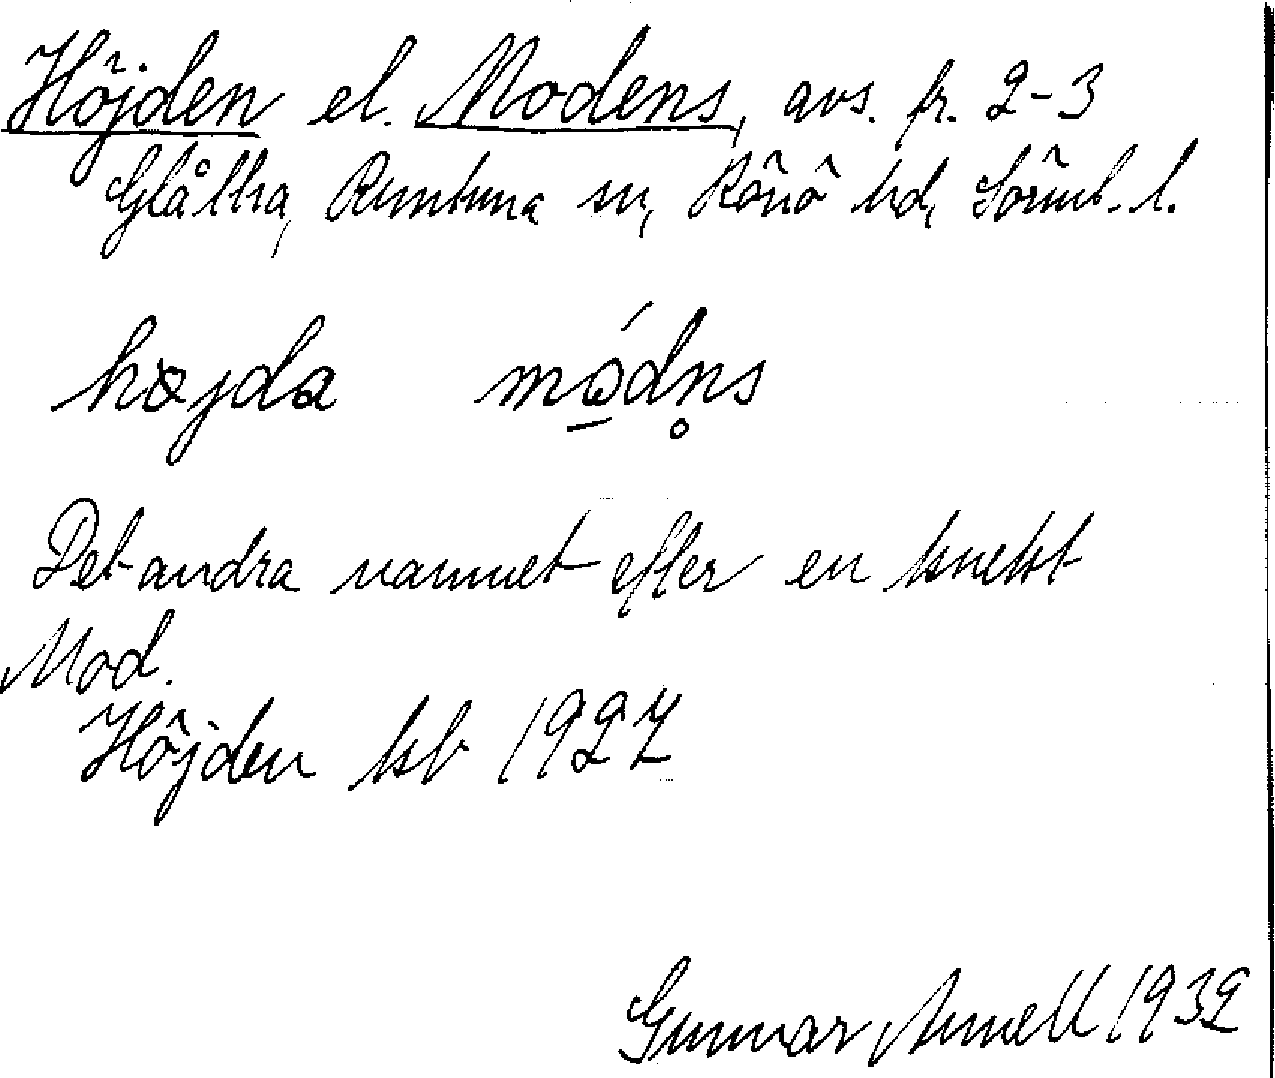 Höjden el. Modens, avs. fr. 2-3
Glåttra, Runtuna sn, Rönö hd, Sörml. l.
højda módn̥s
Det andra namnet efter en knekt
Mod.
Höjden kb 1927
Gunnar Arnell 1932